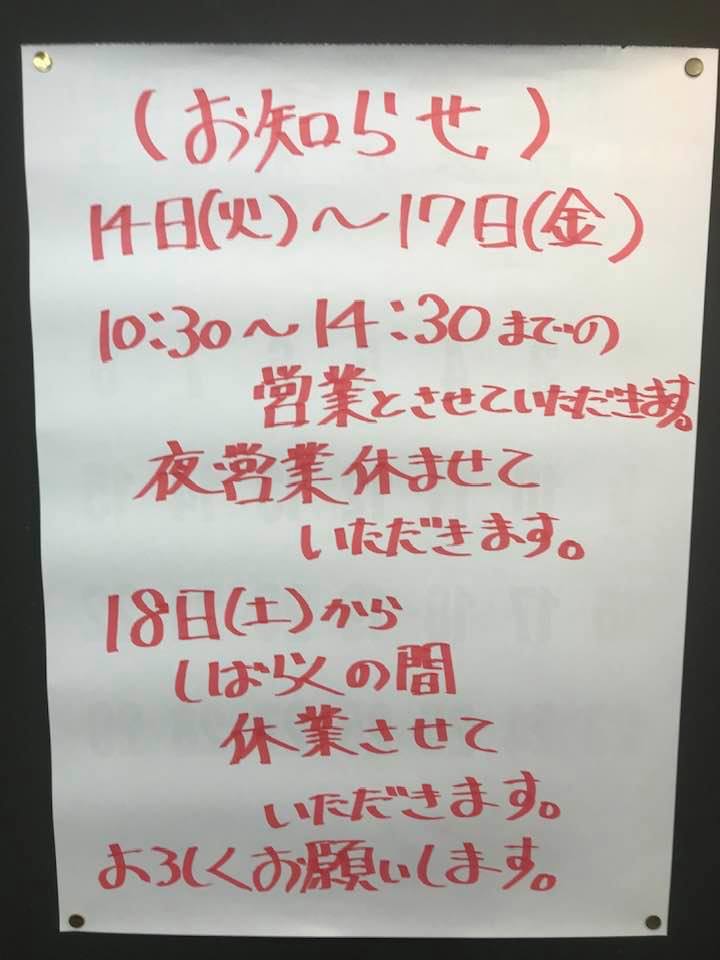 (お知らせ)
14日(火)〜17日(金)
10:30〜14:30までの
営業とさせていただきます。
夜営業休ませて
いただきます。
18日(土)から
しばらくの間
休業させて
いただきます。
よろしくお願いします。